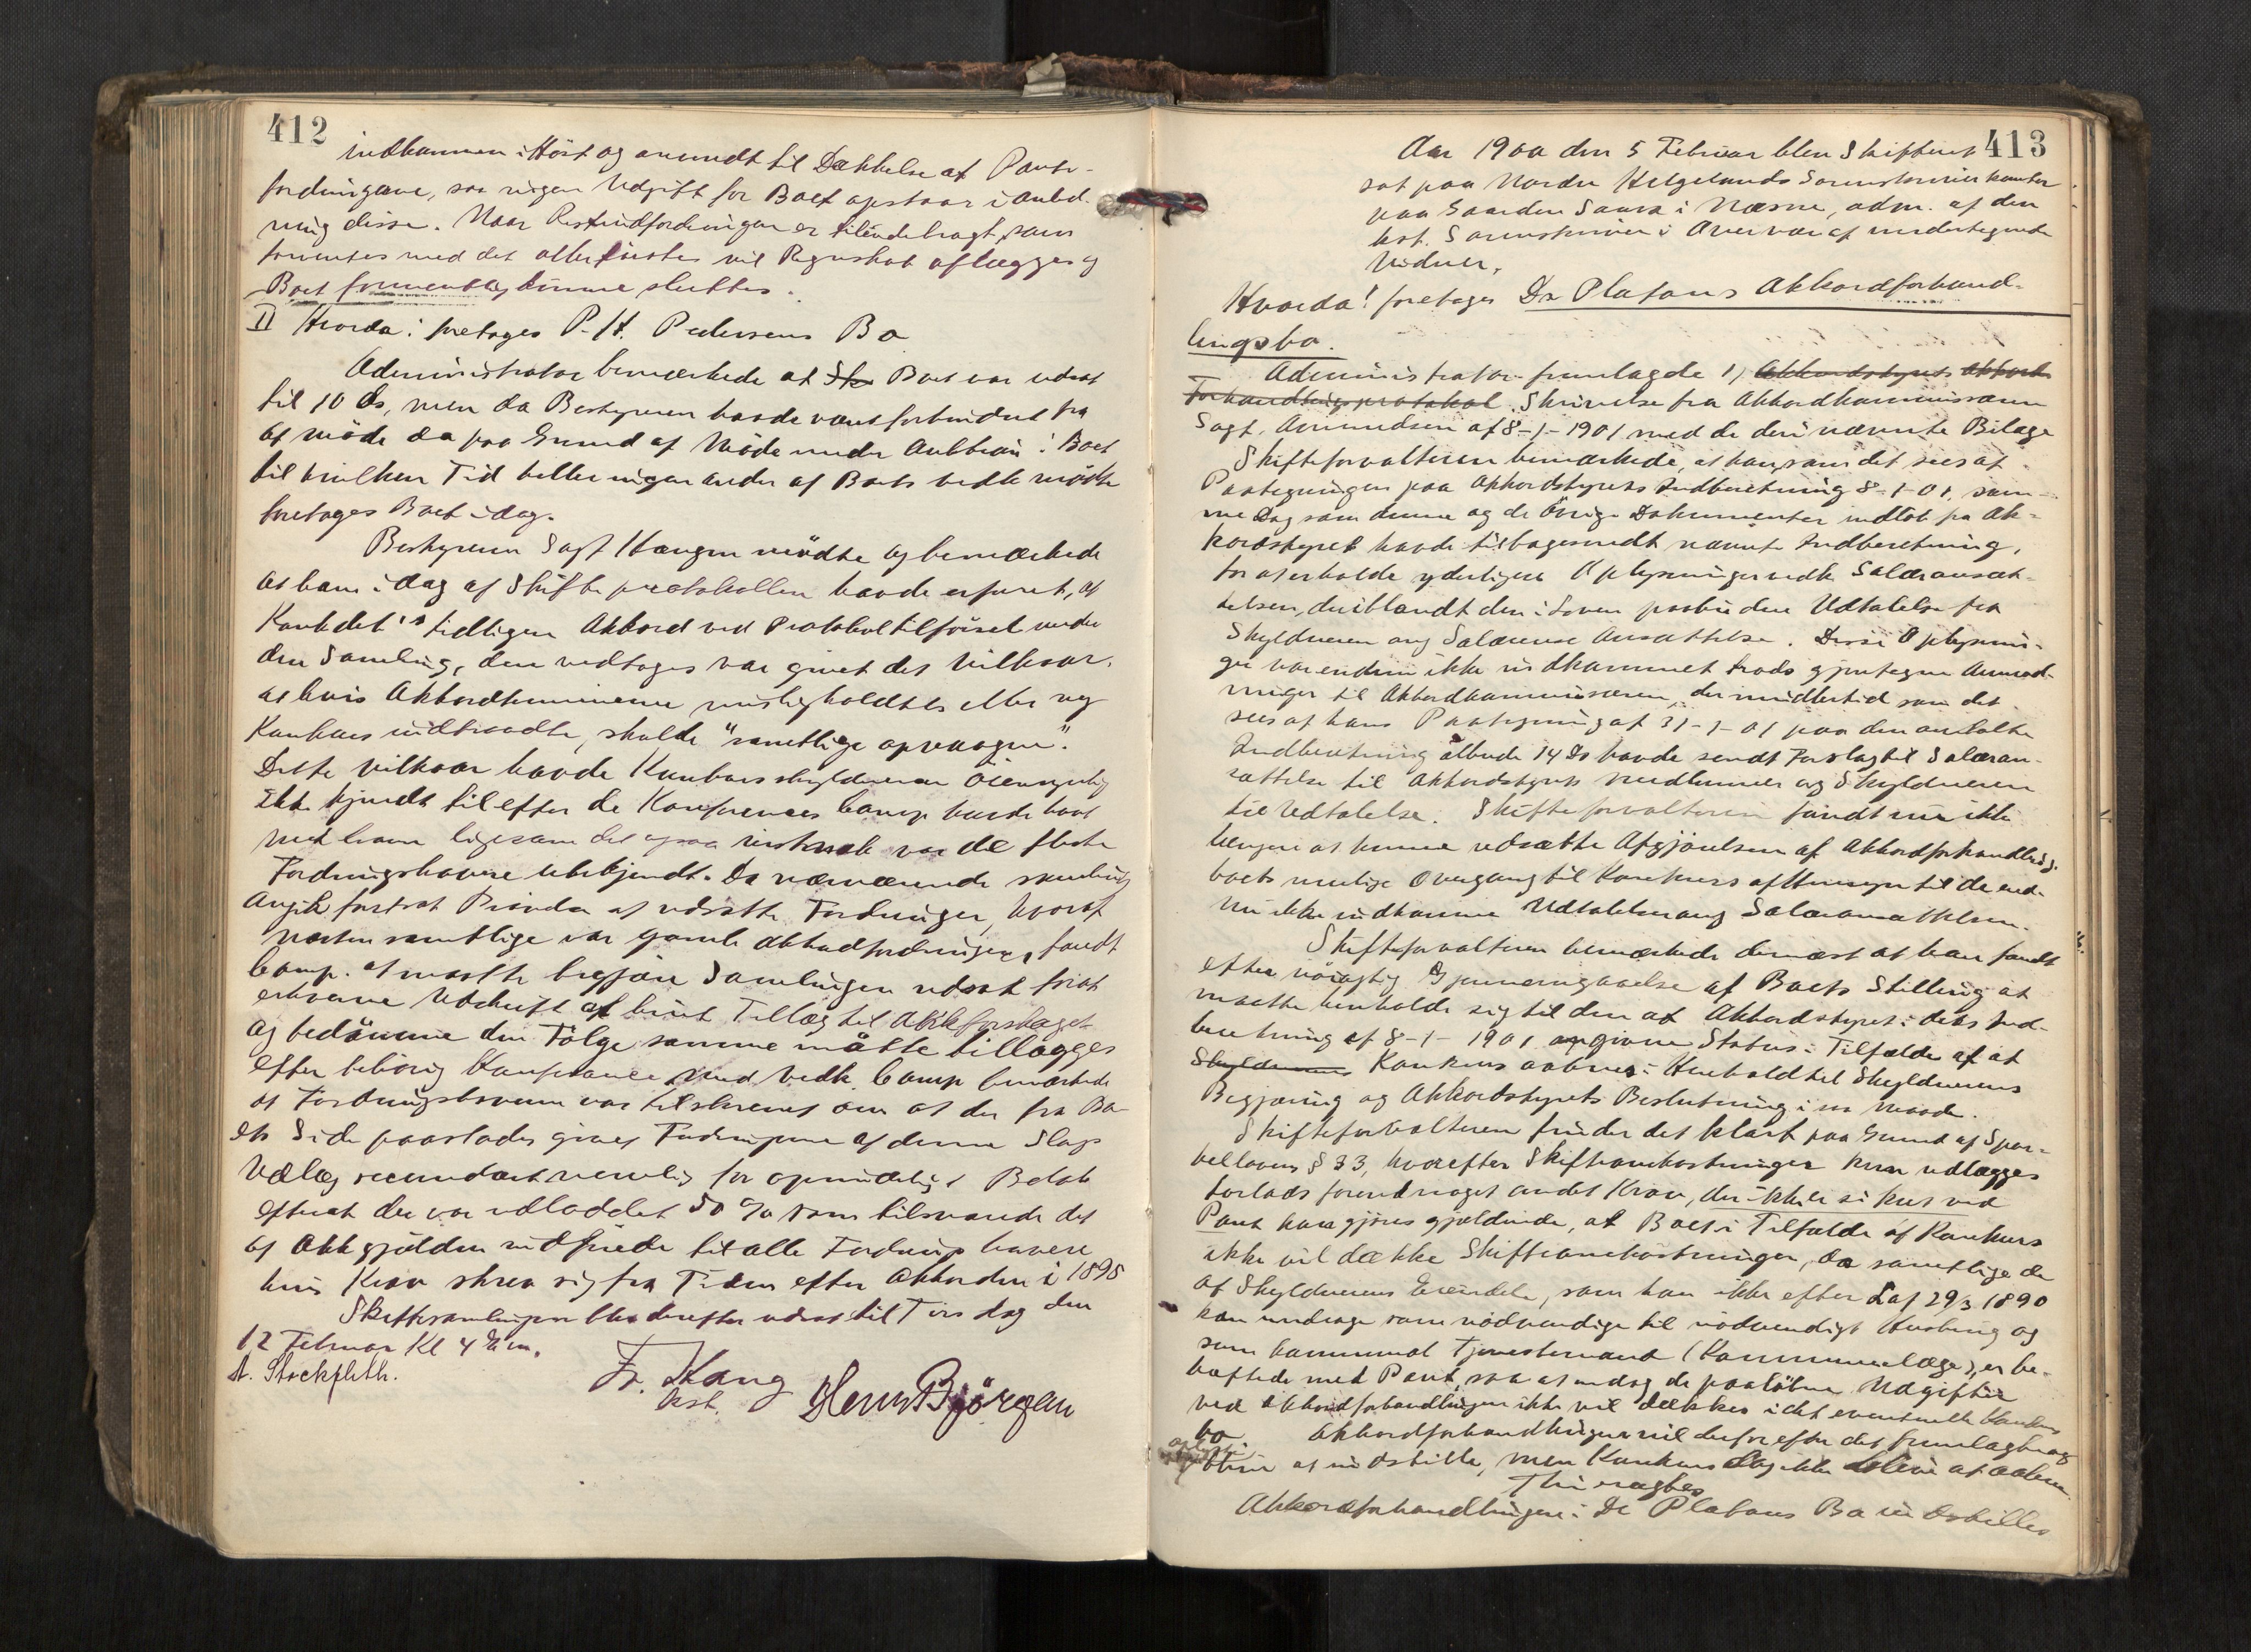 412
indkommen i Höst og anvendt til Dækkelse af Pante-
fordringerne, saa ingen Udgift for Boet opstaar i Anled-
ning disse. Naar Restindfordringen er tilendebragt, som
forventes med det allerførste vil Regnskab aflægges og
Boet formentlig kunne sluttes.
II Hvorda: foretoges P. H. Pedersens Bo
Administrator bemærkede at Boet var udsat
til 10 ds, men da Bestyreren havde været forhindret fra
at möde da paa Grund af Möde under Auktion i Boet
til hvilken Tid heller ingen anden af Boets vedk. mödte
foretages Boet idag.
Bestyreren Sagf. Haugen mödte og bemærkede
at han i dag af Skifteprotokollen havde erfaret, at
tidligere Akkord ved Protokoltilförsel under
den Samling, den vedtoges var givet det Vilkaar,
at hvis Akkordterminerne misligholdtes eller ny
Konkurs indtraadte, skulde "samtlige opvaagne".
Dette Vilkaar havde Konkursskyldneren öiensynlig
ikke kjendt til efter de Konferencer Comp. havde havt
med ham ligesom det ogsaa var de fleste
Fordringshavere ubekjendt. Da nærværende samling
angik fortsat Prövelse af udsatte Fordringer, hvoraf
næsten samtlige var gamle Akkordfordringer, fandt
Comp. at maatte begjære Samlingen udsat for at
erhverve Udskrift af hint Tillæg til Akkforslaget
og bedömme den Fölge samme måtte tillægges
efter behörig Konferance med vedk. Comp. bemærkede
at Fordringshaverne var tilskrevet om at der fra Bo-
ets Side paastodes givet Fordringerne af denne Slags
Udlæg secundært nemlig for oprindeligt Belöb
efterat der var udloddet 50 % som tilsvarende det
af Akkgjælden indfriede til alle Fordringshavere
hvis Krav skrev sig fra Tiden efter Akkorden i 1898
Skiftesamlingen blev derefter udsat til Tirsdag den
12 Februar Kl 4 Em.
A. Stockfleth.
Fr. Kang
kst.
Henr Björgan
413
Aar 1900 den 5 Februar blev Skifteret
sat paa Nordre Helgelands Sorenskriverkontor
paa Gaarden Saura i Nesne, adm. af den
kst. Sorenskriver i Overvær af undertegnede
Vidner,
Hvorda! foretoges Dr Platous Akkordforhand-
lingsbo.
Administrator fremlagde 1) Akkordstyrets Akkord-
Forhandlingsprotokol. Skrivelse fra Akkordkommissæren
Sagf. Amundsen af 8-1-1901 med de deri nævnte Bilage
Skifteforvalteren bemærkede, at han, som det sees af
Paategningen paa Akkordstyrets Indberetning 8-1-01, sam-
me Dag som denne og de övrige Dokumenter indlöb fra Ak-
kordstyret havde tilbagesendt nævnte Indberetning,
for at erholde yderligere Oplysninger vedk. Salæransæt-
telsen, deriblandt den i Loven paabudne Udtalelse fra
Skyldneren ang Salærernes Ansættelse. Disse Oplysnin-
ger var endnu ikke indkommet trods gjentagne Anmod-
ninger til Akkordkommissæren, der imidlertid som det
sees af hans Paategning af 31-1-01 paa den omtalte
Indberetning allerede 14 Ds havde sendt Forslag til Salæran-
sættelse til Akkordstyrets medlemmer og Skyldneren
til Udtalelse. Skifteforvalteren fandt nu ikke
længere at kunne udsætte Afgjörelsen af Akkordforhandlings-
boets mulige Overgang til Konkurs af Hensyn til de end-
nu ikke indkomne Udtalelser ang Salæransættelsen.
Skifteforvalteren bemærkede dernæst at han fandt
efter nöiagtig Gjennemgaaelse af Boets Stilling at
maatte henholde sig til den af Akkordstyret i dets Ind-
beretning af 8-1-1901 opgivne Status i Tilfælde af at
Skyldnerens Konkurs aabnes i Henhold til Skyldnerens
Begjæring og Akkordstyrets Beslutning i saa Maade.
Skifteforvalteren finder det klart paa Grund af Spor-
tellovens § 33, hvorefter Skifteomkostninger kun udlægges
forlods forend noget andet Krav, der ikke er sikret ved
Pant kan gjöres gjældende, at Boet i Tilfælde af Konkurs
ikke vil dække Skifteomkostninger, da samtlige de
af Skyldnerens Eiendele, som han ikke efter L af 29/3 1890
kan undrage som nödvendige til nödvendigt Husbrug og
som kommunal Tjenestemand (Kommunelæge), er be-
hæftede med Pant, saa at endog de paalöbne Udgifter
ved Akkordforhandlingen ikke vil dækkes i det eventuelle Konkurs-
bo. Akkordforhandlingen vil derfor efter det fremlagte og
oplyste blive at indstille, men Konkurs dog ikke blive at aabne.
Thi eragtes
Akkordforhandlingen i Dr Platous Bo indstilles